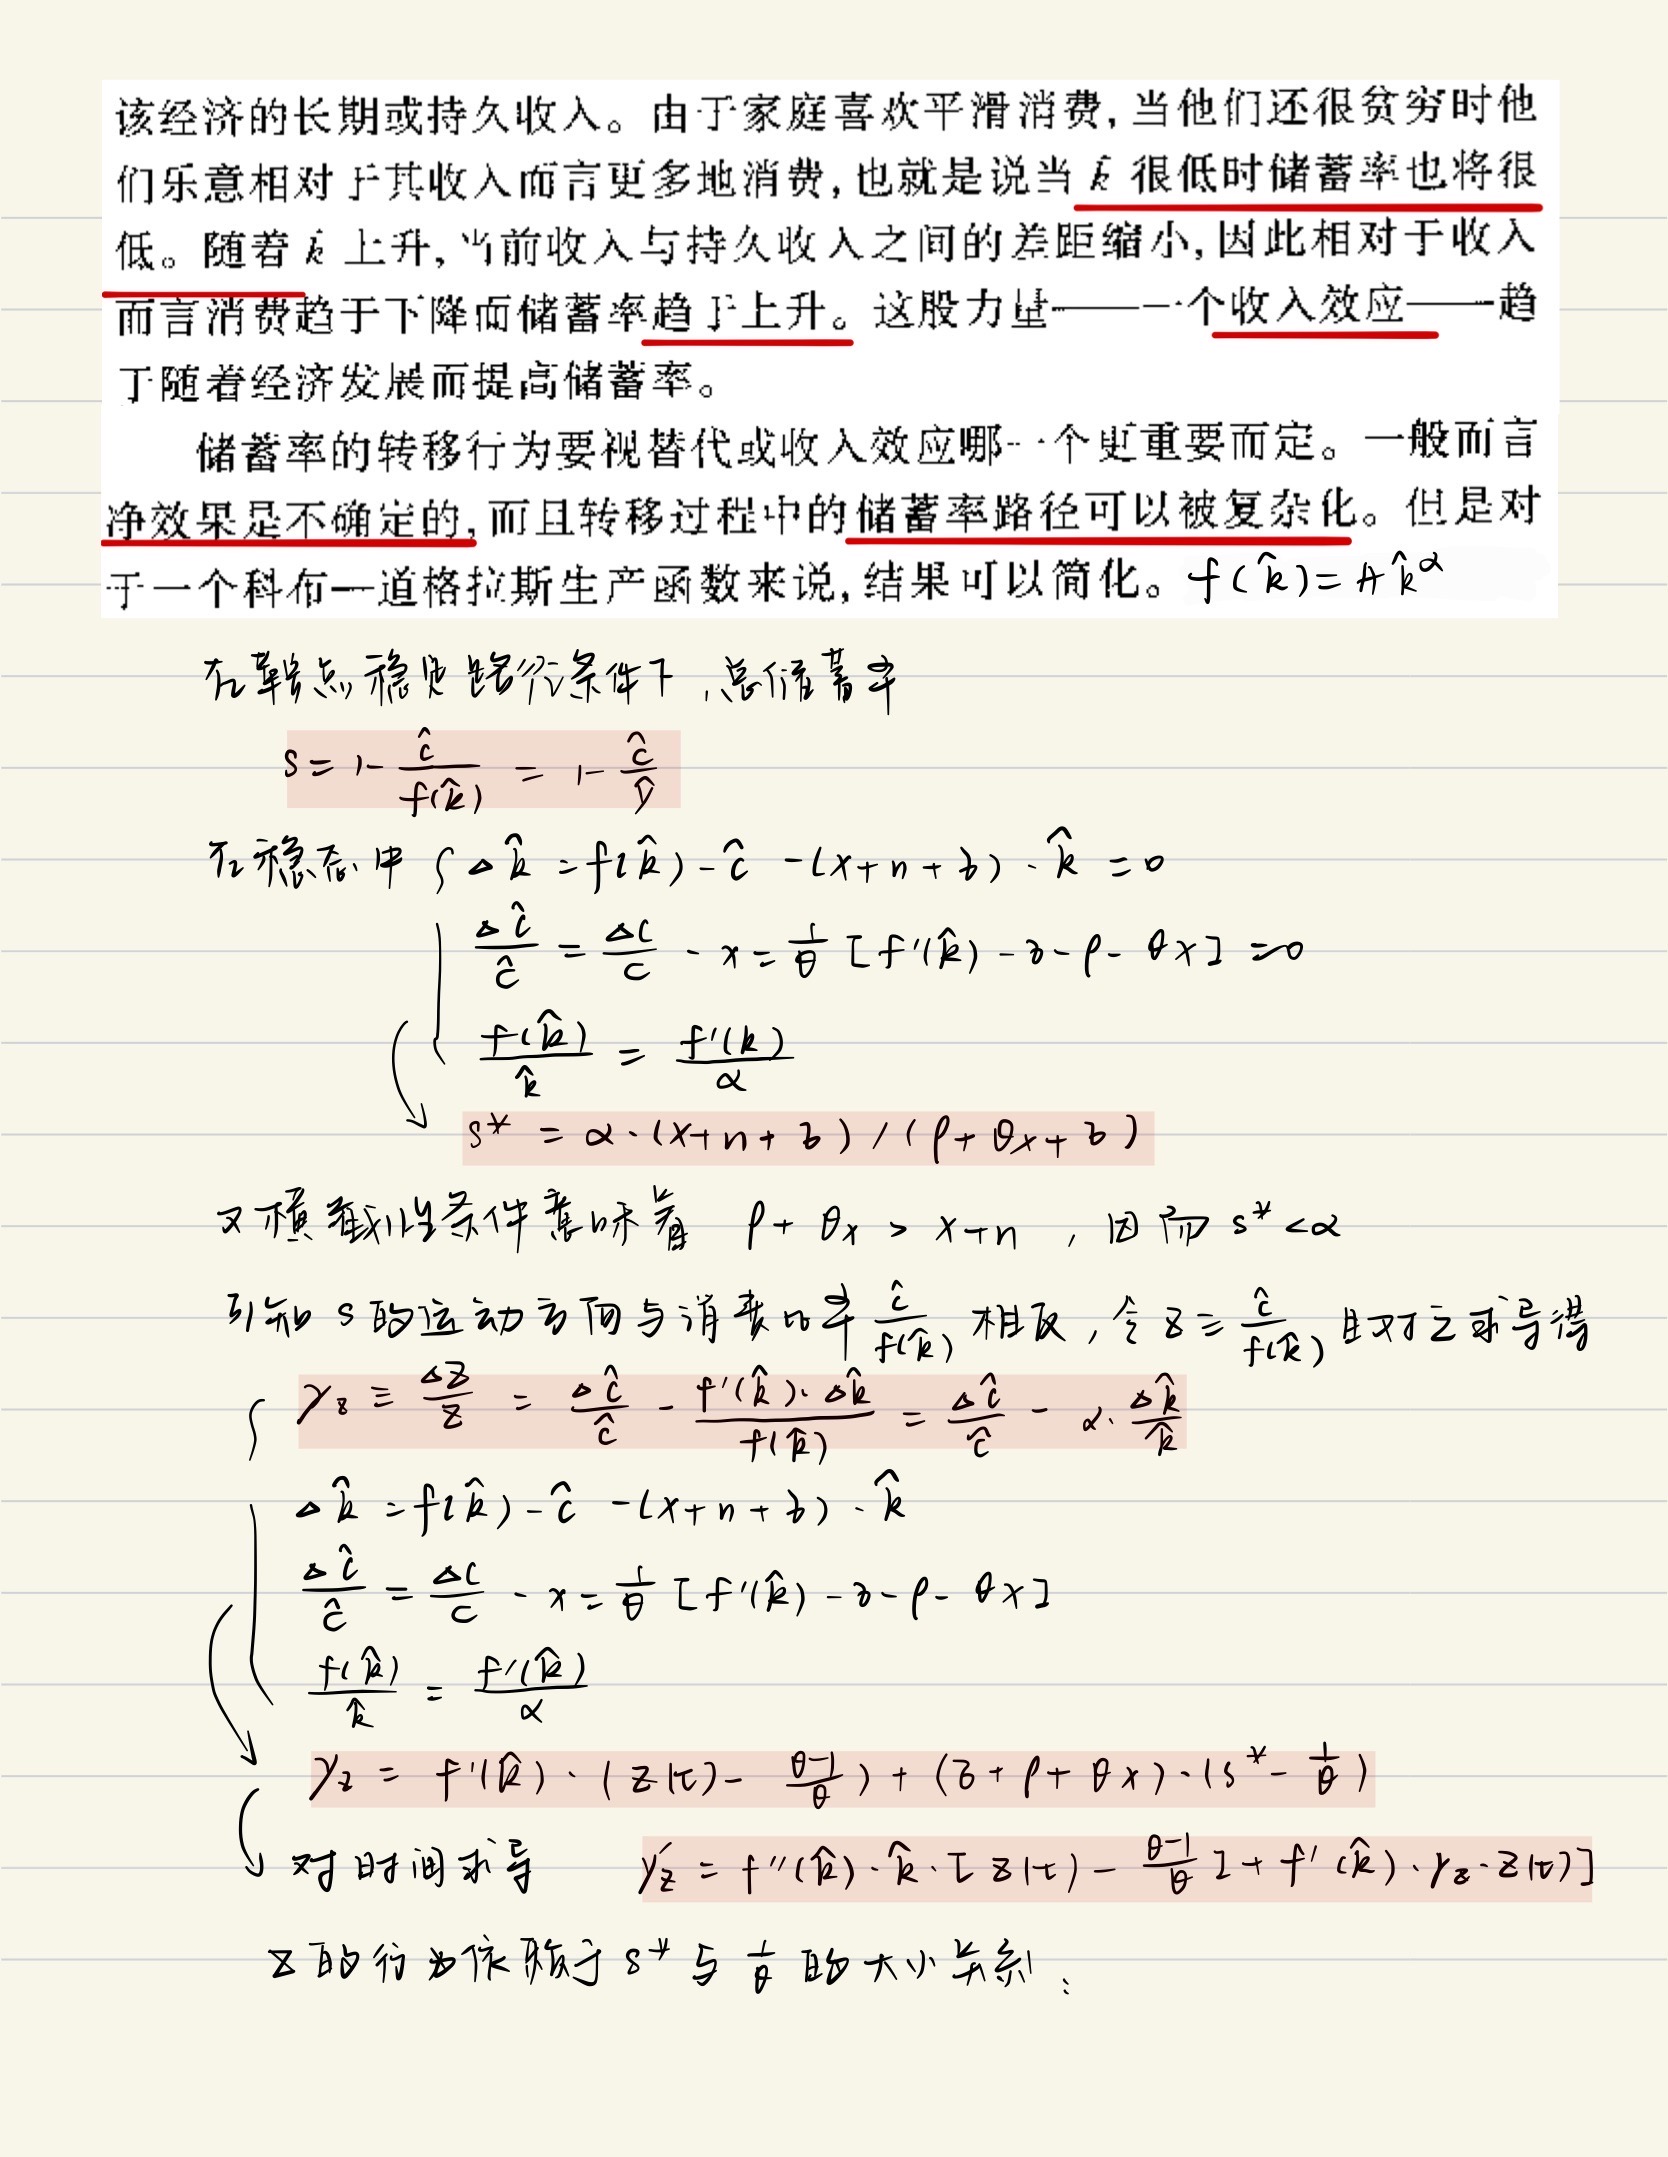 该经济的长期或持久收入。由于家庭喜欢平滑消费,当他们还很贫穷时他
们乐意相对于其收入而言更多地消费,也就是说当 k̂ 很低时储蓄率也将很
低。随着 k̂ 上升,当前收入与持久收入之间的差距缩小,因此相对于收入
而言消费趋于下降而储蓄率趋于上升。这股力量——一个收入效应——趋
于随着经济发展而提高储蓄率。
储蓄率的转移行为要视替代或收入效应哪一个更重要而定。一般而言
净效果是不确定的,而且转移过程中的储蓄率路径可以被复杂化。但是对
于一个科布—道格拉斯生产函数来说,结果可以简化。 f(k̂)=Ak̂^α
在鞍点稳定路径条件下,总储蓄率
s = 1- ĉ/f(k̂) = 1- ĉ/ŷ
在稳态中 { Δk̂ = f(k̂)-ĉ -(x+n+δ)·k̂ =0
Δĉ/ĉ = Δc/c - x = 1/θ [f'(k̂)-δ-ρ-θx] =0
f(k̂)/k̂ = f'(k)/α
s* = α·(x+n+δ)/(ρ+θx+δ)
又横截性条件意味着 ρ+θx > x+n , 因而 s*<α
引知 s 的运动方向与消费比率 ĉ/f(k̂) 相反,令 z≡ ĉ/f(k̂) 且对之求导得
γz ≡ Δz/z = Δĉ/ĉ - f'(k̂)·Δk̂/f(k̂) = Δĉ/ĉ - α·Δk̂/k̂
Δk̂ = f(k̂)-ĉ -(x+n+δ)·k̂
Δĉ/ĉ = Δc/c - x = 1/θ [f'(k̂)-δ-ρ-θx]
f(k̂)/k̂ = f'(k̂)/α
γz = f'(k̂)·(z(t)- (θ-1)/θ)+(δ+ρ+θx)·(s*- 1/θ)
对时间求导 γ'z = f''(k̂)·k̂·[z(t)- (θ-1)/θ]+f'(k̂)·γz·z(t)]
z 的行为依赖于 s* 与 1/θ 的大小关系: